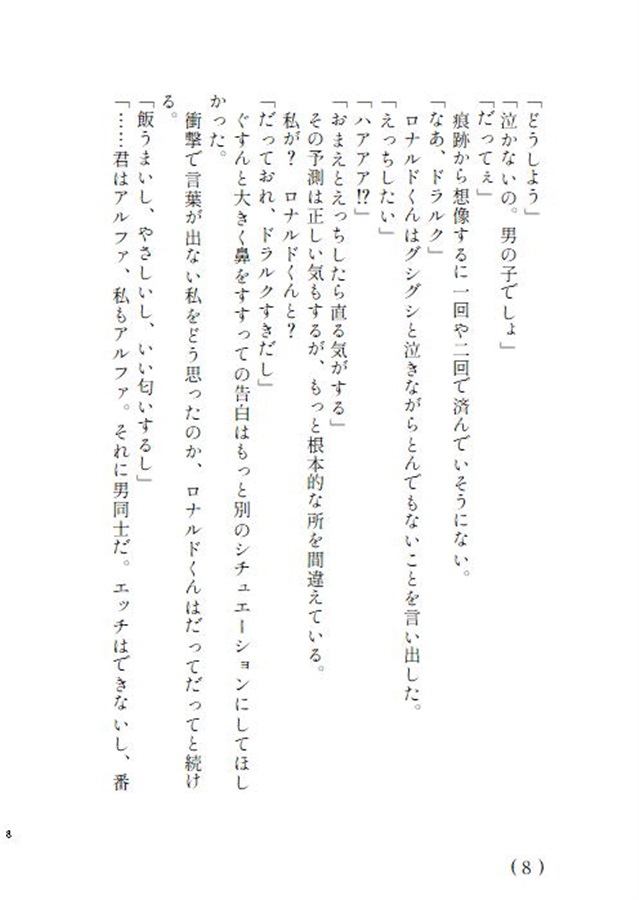 「どうしよう」
「泣かないの。男の子でしょ」
「だってぇ」
痕跡から想像するに一回や二回で済んでいそうにない。
「なあ、ドラルク」
ロナルドくんはグシグシと泣きながらとんでもないことを言い出した。
「えっちしたい」
「ハアアア!?」
「おまえとえっちしたら直る気がする」
その予測は正しい気もするが、もっと根本的な所を間違えている。
私が？　ロナルドくんと？
「だっておれ、ドラルクすきだし」
ぐすんと大きく鼻をすすっての告白はもっと別のシチュエーションにしてほし
かった。
衝撃で言葉が出ない私をどう思ったのか、ロナルドくんはだってだってと続け
る。
「飯うまいし、やさしいし、いい匂いするし」
「……君はアルファ、私もアルファ。それに男同士だ。エッチはできないし、番
8
(8)